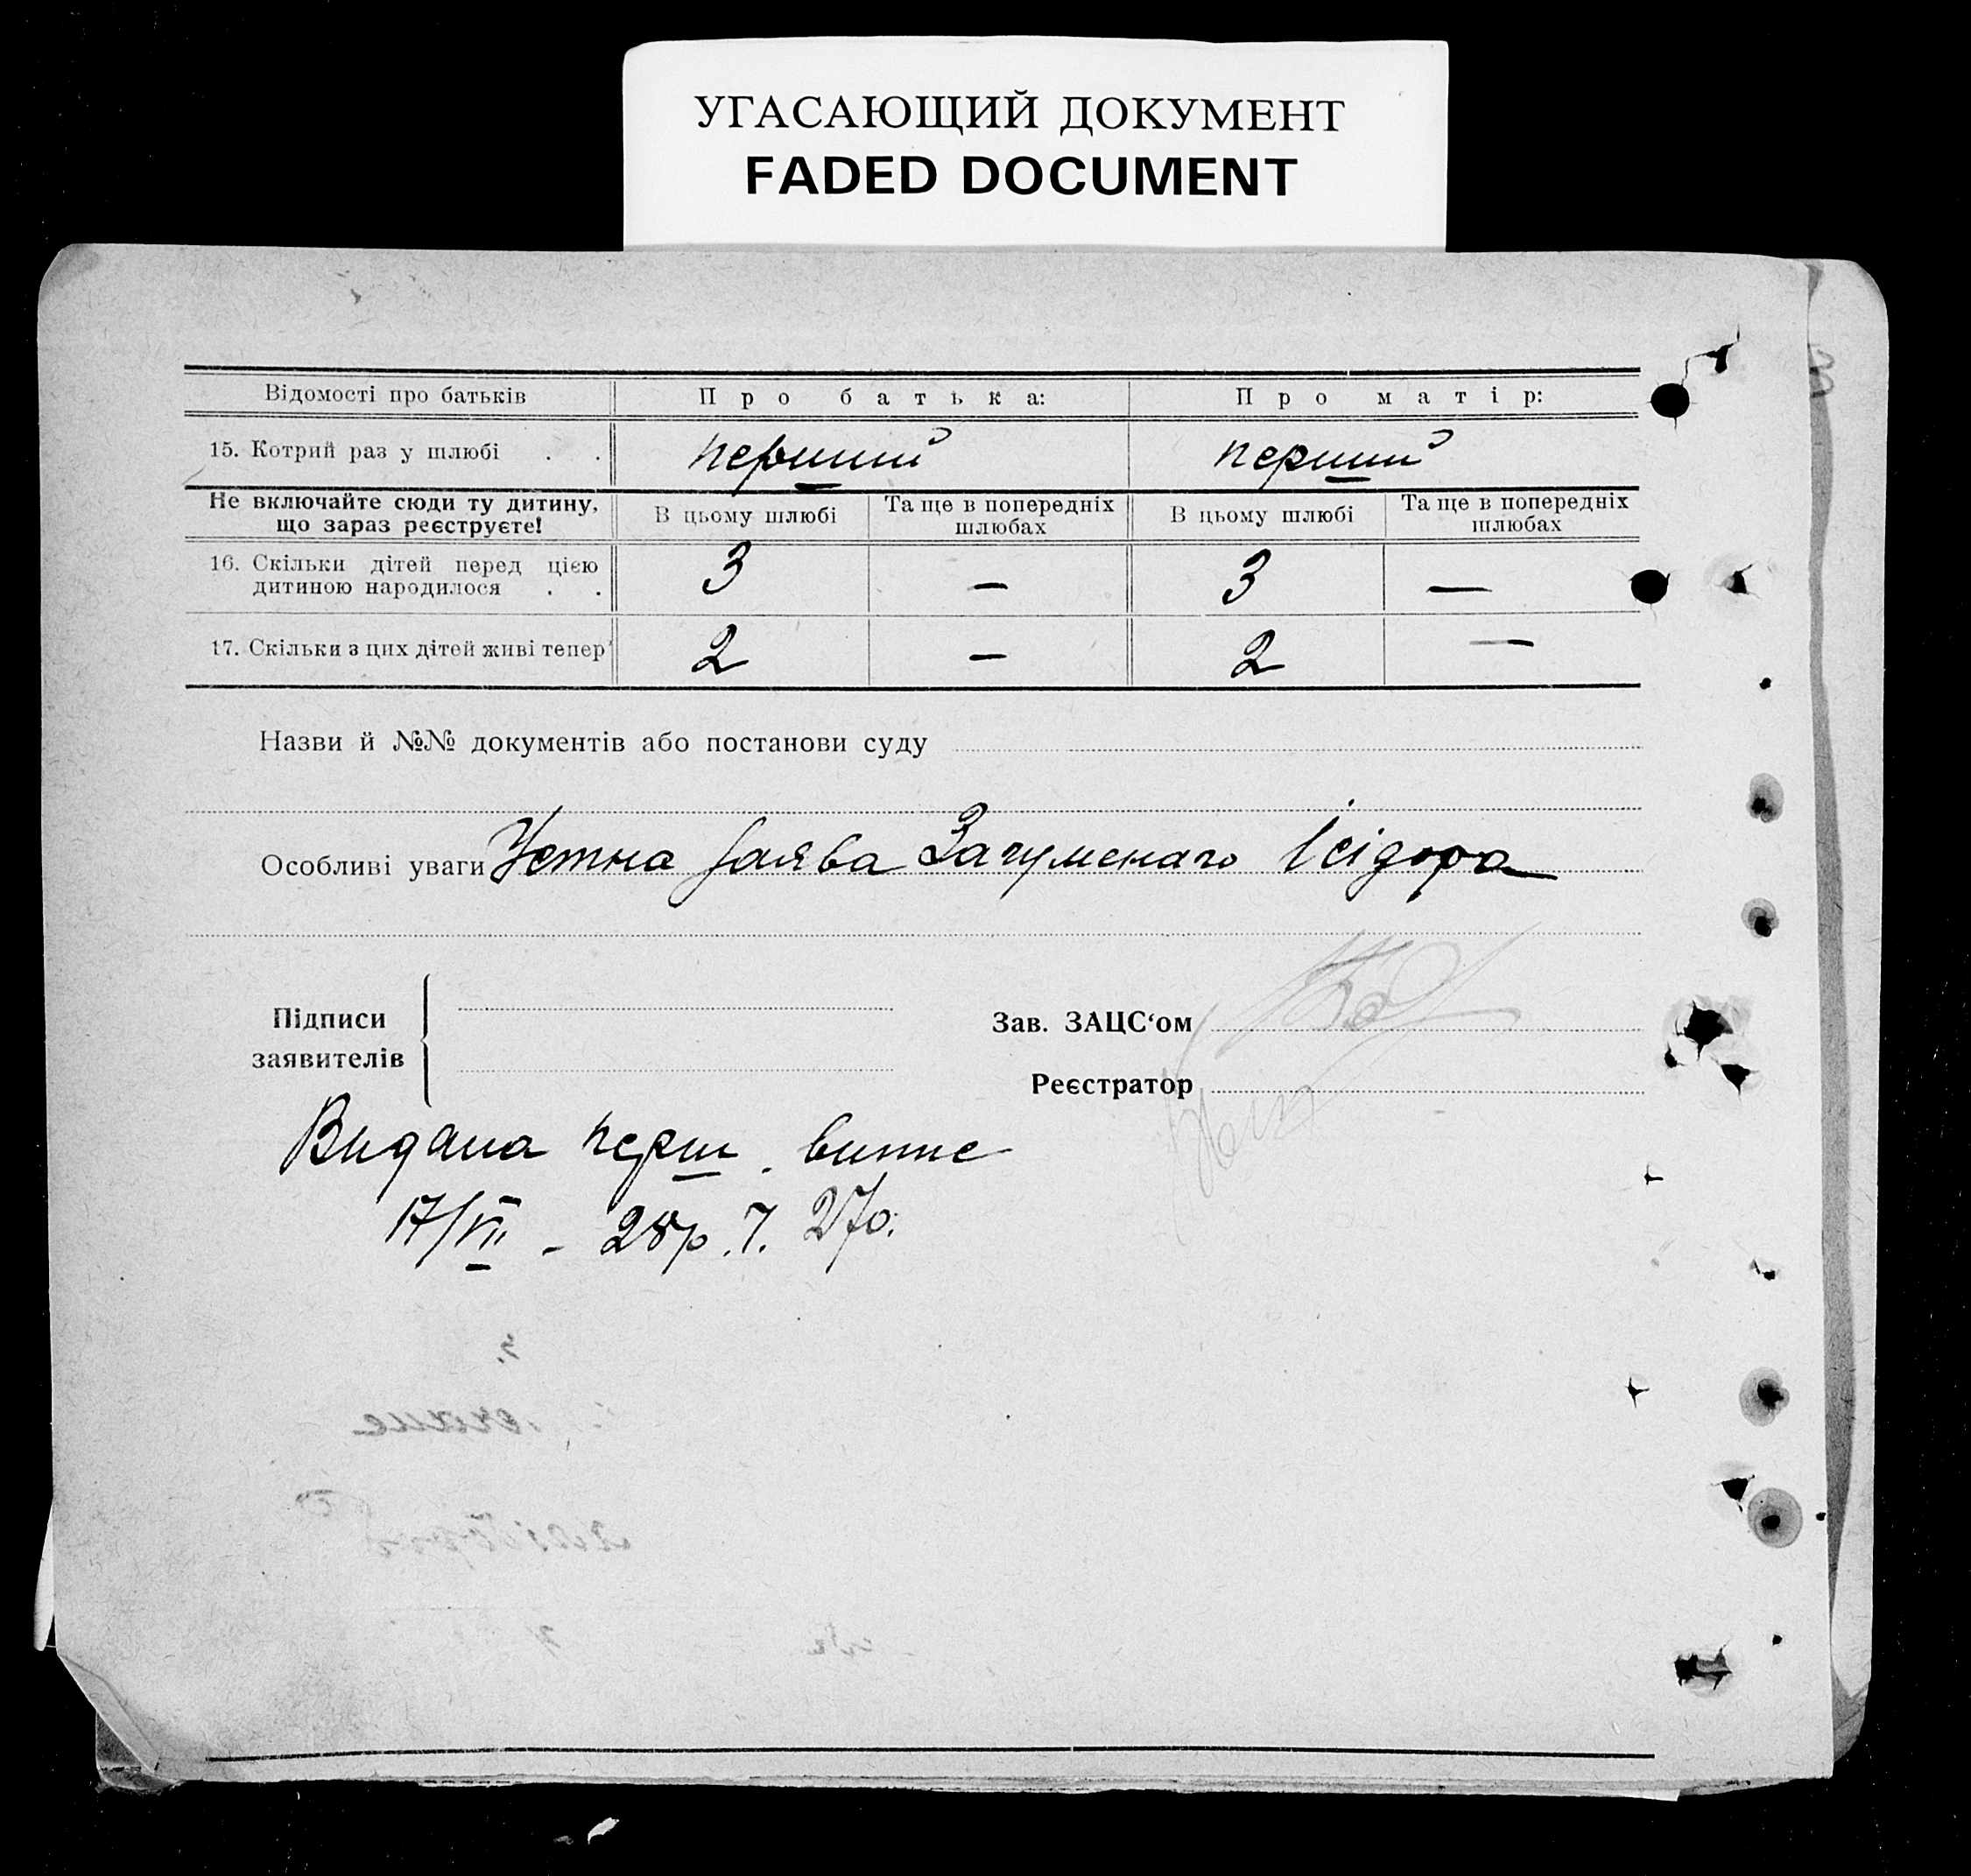 УГАСАЮЩИЙ ДОКУМЕНТ
FADED DOCUMENT
Відомості про батьків Про батька: Про матір:
15. Котрий раз у шлюбі . . перший перший
Не включайте сюди ту дитину, що зараз реєструєте! В цьому шлюбі Та ще в попередніх шлюбах В цьому шлюбі Та ще в попередніх шлюбах
16. Скільки дітей перед цією дитиною народилося . . 3 — 3 —
17. Скільки з цих дітей живі тепер 2 — 2 —
Назви й №№ документів або постанови суду
Особливі уваги Устна заява Загуменаго Ісідора
Підписи заявителів
Зав. ЗАЦС‘ом
Реєстратор
Видана перш. випис
17/VII - 28р. 7. 270.